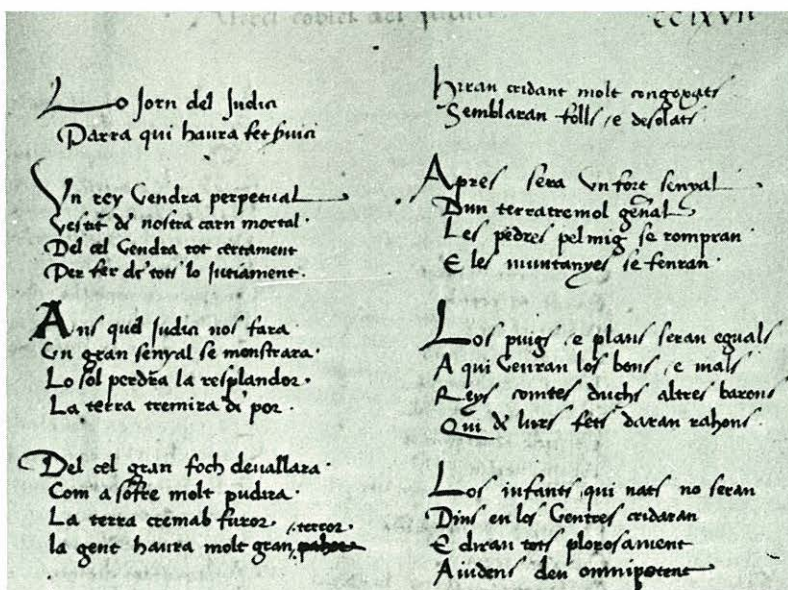 CCLXVII
Lo Jorn del Judici
Parra qui haura fet servici
Un rey vendra perpetual
Vestit de nostra carn mortal.
Del cel vendra tot certament
Per fer de tots lo jutiament.
Ans quel Judici nos fara
Un gran senyal se monstrara.
Lo sol perdra la resplandor.
La terra tremira de por.
Del cel gran foch devallara.
Com a sofre molt pudira.
La terra cremab furor.
terror.
la gent haura molt gran
Hiran cridant molt congoxats
Semblaran folls, e desolats.
Apres sera un fort senyal
Dun terratremol general
Les pedres pel mig se rompran
E les muntanyes se fenran.
Los puigs, e plans seran eguals
A qui venran los bons, e mals
Reys comtes duchs altres barons
Qui de lurs fets daran rahons.
Los infants, qui nats no seran
Dins en los ventres cridaran
E diran tots plorosament
Aiudens deu omnipotent